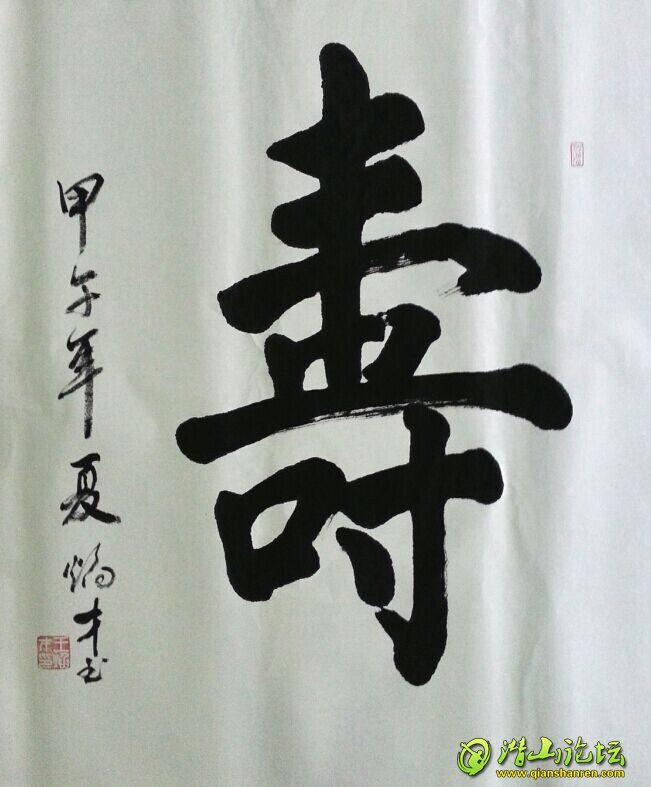 壽
甲午年夏
才书
潜山论坛
www.qianshanren.com